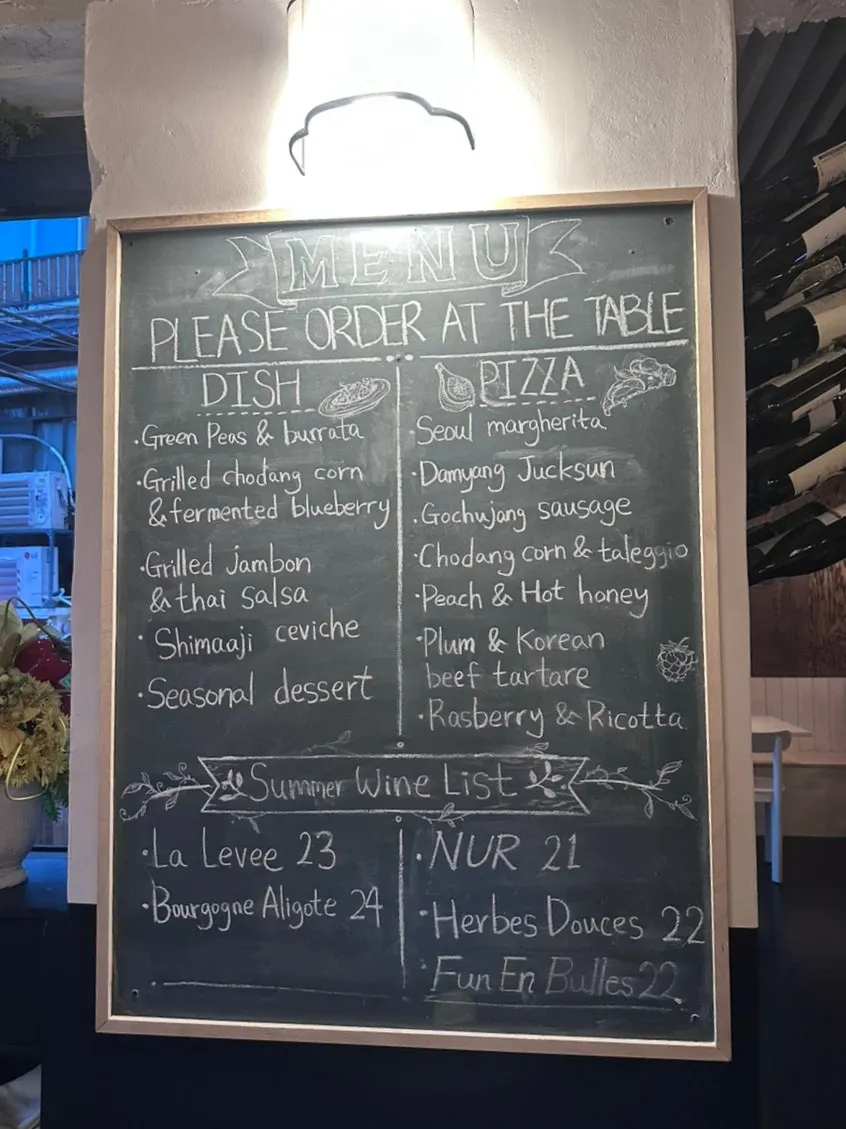 MENU
PLEASE ORDER AT THE TABLE
DISH
·Green Peas & burrata
·Grilled chodang corn
& fermented blueberry
·Grilled jambon
& thai salsa
·Shimaaji ceviche
·Seasonal dessert
PIZZA
·Seoul margherita
·Damyang Jucksun
·Gochujang sausage
·Chodang corn & taleggio
·Peach & Hot honey
·Plum & Korean
beef tartare
·Rasberry & Ricotta
Summer Wine List
·La Levee 23
·Bourgogne Aligote 24
·NUR 21
·Herbes Douces 22
·Fun En Bulles 22